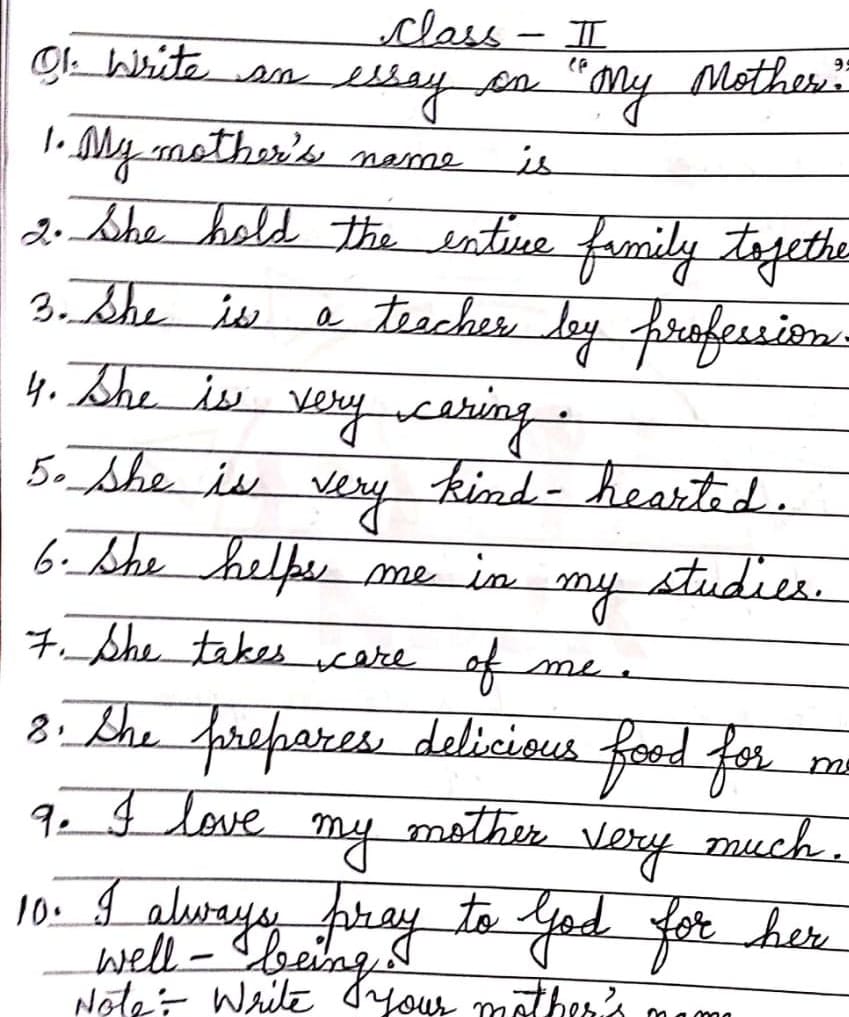 Class - II
Q1. Write an essay on "My Mother."
1. My mother's name is
2. She hold the entire family togethe
3. She is a teacher by profession.
4. She is very caring.
5. She is very kind-hearted.
6. She helps me in my studies.
7. She takes care of me.
8. She prepares delicious food for m
9. I love my mother very much.
10. I always pray to God for her
well-being.
Note:- Write your mother's name